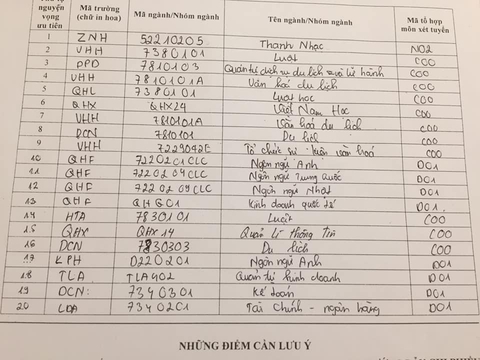 nguyện vọng ưu tiên Mã trường (chữ in hoa) Mã ngành/Nhóm ngành Tên ngành/Nhóm ngành Mã tổ hợp môn xét tuyển
1 ZNH 52210205 Thanh Nhạc N02
2 VHH 7380101 Luật C00
3 DPD 7810103 Quản trị dịch vụ du lịch và lữ hành C00
4 VHH 7810101A Văn hoá du lịch C00
5 QHL 7380101 Luật học C00
6 QHX QHX24 Việt Nam Học C00
7 VHH 7810101A Văn hoá du lịch C00
8 DCN 7810101 Du lịch C00
9 VHH 7229042E Tổ chức sự kiện văn hoá C00
10 QHF 7220201CLC Ngôn ngữ Anh D01
11 QHF 7220204CLC Ngôn ngữ Trung Quốc D01
12 QHF 7220209CLC Ngôn ngữ Nhật D01
13 QHF QHG01 Kinh doanh quốc tế D01
14 HTA 7830101 Luật C00
15 QHX QHX14 Quản lí thông tin C00
16 DCN 7830303 Du lịch C00
17 KPH D220201 Ngôn ngữ Anh D01
18 TLA TLA402 Quản trị kinh doanh D01
19 DCN: 7340301 Kế toán D01
20 LDA 7340201 Tài chính - ngân hàng D01
NHỮNG ĐIỂM CẦN LƯU Ý